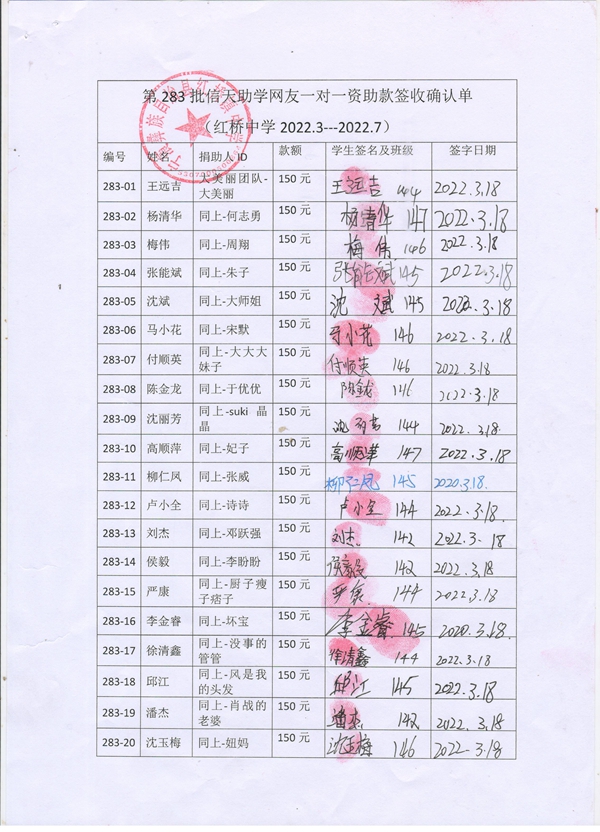 第 283 批信天助学网友一对一资助款签收确认单
（红桥中学 2022.3---2022.7）
编号 姓名 捐助人 ID 款额 学生签名及班级 签字日期
283-01 王远吉 大美丽团队- 150 元 王远吉 144 2022.3.18
大美丽
283-02 杨清华 同上-何志勇 150 元 杨清华 147 2022.3.18
283-03 梅伟 同上-周翔 150 元 梅伟 146 2022.3.18
283-04 张能斌 同上-朱子 150 元 张能斌 145 2022.3.18
283-05 沈斌 同上-大师姐 150 元 沈斌 145 2022.3.18
283-06 马小花 同上-宋默 150 元 马小花 146 2022.3.18
283-07 付顺英 同上-大大大 150 元 付顺英 146 2022.3.18
妹子
283-08 陈金龙 同上-于优优 150 元 146 2022.3.18
283-09 沈丽芳 同上-suki 晶 150 元 沈丽芳 144 2022.3.18
晶
283-10 高顺萍 同上-妃子 150 元 高顺萍 147 2022.3.18
283-11 柳仁凤 同上-张威 150 元 柳仁凤 145 2020.3.18.
283-12 卢小全 同上-诗诗 150 元 卢小全 144 2022.3.18.
283-13 刘杰 同上-邓跃强 150 元 刘杰 142 2022.3.18
283-14 侯毅 同上-李盼盼 150 元 侯毅 142 2022.3.18
283-15 严康 同上-厨子瘦 150 元 严康 144 2022.3.18
子痞子
283-16 李金睿 同上-坏宝 150 元 李金睿 145 2020.3.18.
283-17 徐清鑫 同上-没事的 150 元 徐清鑫 144 2022.3.18
管管
283-18 邱江 同上-风是我 150 元 邱江 145 2022.3.18
的头发
283-19 潘杰 同上-肖战的 150 元 潘杰 142 2022.3.18
老婆
283-20 沈玉梅 同上-妞妈 150 元 沈玉梅 146 2022.3.18